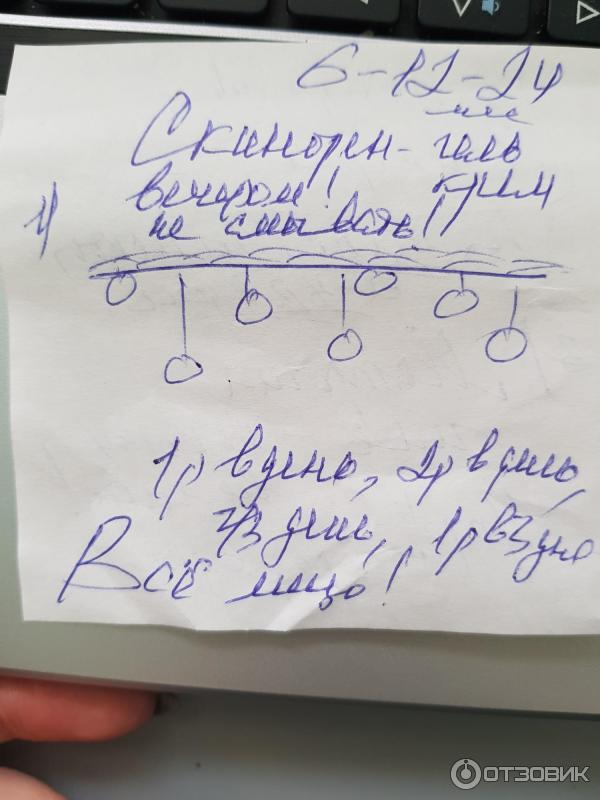 6-12-24
мес
Скинорен - гель
вечером! крем
1) не смывать!
1р в день, 2р в день,
ч/з день, 1р в 3 дня
Всё лицо!
ОТЗОВИК